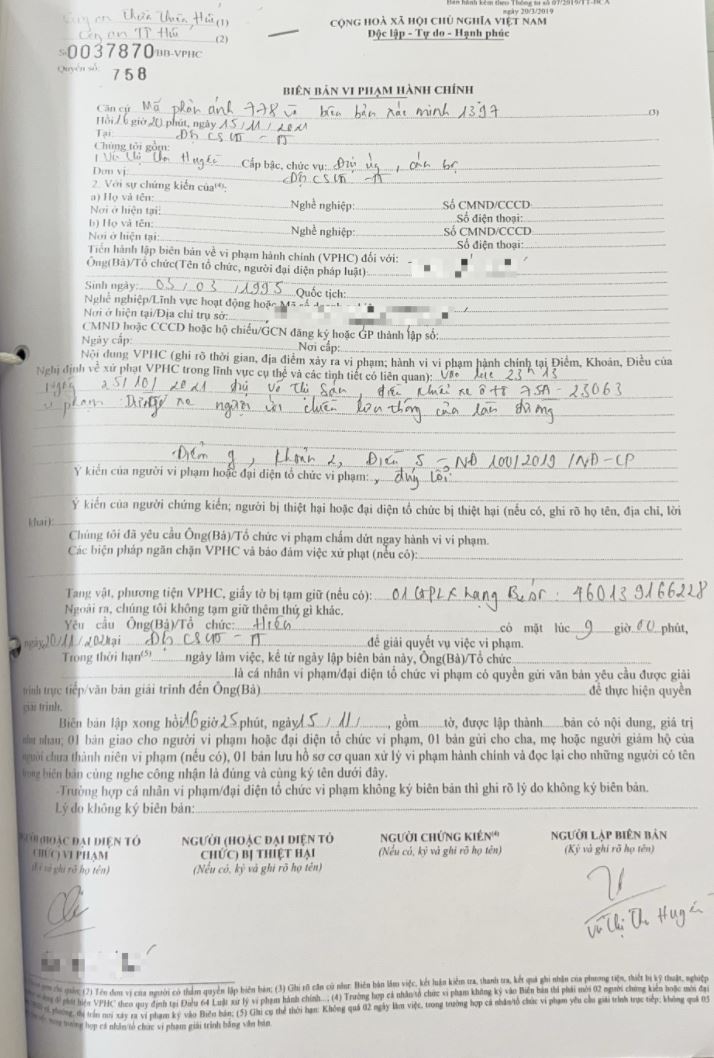 Ban hành kèm theo Thông tư số 07/2019/TT-BCA
ngày 20/3/2019
Công an Thừa Thiên Huế (1)
Công an TP Huế (2)
CỘNG HOÀ XÃ HỘI CHỦ NGHĨA VIỆT NAM
Độc lập - Tự do - Hạnh phúc
Số 0037870/BB-VPHC
Quyển số: 758
BIÊN BẢN VI PHẠM HÀNH CHÍNH
Căn cứ Mã phản ánh 778 và biên bản xác minh 1397 (3)
Hồi 16 giờ 20 phút, ngày 15/11/2021
Tại:
Chúng tôi gồm:
1. Võ Thị Thu Huyền Cấp bậc, chức vụ: Đại úy, cán bộ
Đơn vị:
2. Với sự chứng kiến của(4):
a) Họ và tên: Nghề nghiệp: Số CMND/CCCD
Nơi ở hiện tại: Số điện thoại:
b) Họ và tên: Nghề nghiệp: Số CMND/CCCD
Nơi ở hiện tại: Số điện thoại:
Tiến hành lập biên bản về vi phạm hành chính (VPHC) đối với:
Ông(Bà)/Tổ chức(Tên tổ chức, người đại diện pháp luật)
Sinh ngày: 05/03/1995 Quốc tịch:
Nghề nghiệp/Lĩnh vực hoạt động hoặc Mã số
Nơi ở hiện tại/Địa chỉ trụ sở:
CMND hoặc CCCD hoặc hộ chiếu/GCN đăng ký hoặc GP thành lập số:
Ngày cấp: Nơi cấp:
Nội dung VPHC (ghi rõ thời gian, địa điểm xảy ra vi phạm; hành vi vi phạm hành chính tại Điểm, Khoản, Điều của
Nghị định về xử phạt VPHC trong lĩnh vực cụ thể và các tình tiết có liên quan): Vào lúc 23h13
Ngày 25/10/2021 Võ Thị Sáu, điều khiển xe ô tô 75A-23063
vi phạm: Dừng xe ngược với chiều lưu thông của làn đường
Điểm g, khoản 2, Điều 5 - NĐ 100/2019/NĐ-CP
Ý kiến của người vi phạm hoặc đại diện tổ chức vi phạm: đúng lỗi
Ý kiến của người chứng kiến; người bị thiệt hại hoặc đại diện tổ chức bị thiệt hại (nếu có, ghi rõ họ tên, địa chỉ, lời
khai):
Chúng tôi đã yêu cầu Ông(Bà)/Tổ chức vi phạm chấm dứt ngay hành vi vi phạm.
Các biện pháp ngăn chặn VPHC và bảo đảm việc xử phạt (nếu có):
Tang vật, phương tiện VPHC, giấy tờ bị tạm giữ (nếu có): 01 GPLX hạng B2 số: 460139166228
Ngoài ra, chúng tôi không tạm giữ thêm thứ gì khác.
Yêu cầu Ông(Bà)/Tổ chức: có mặt lúc 9 giờ 00 phút,
ngày 20/11/2021 tại để giải quyết vụ việc vi phạm.
Trong thời hạn(5) ngày làm việc, kể từ ngày lập biên bản này, Ông(Bà)/Tổ chức
là cá nhân vi phạm/đại diện tổ chức vi phạm có quyền gửi văn bản yêu cầu được giải
trình trực tiếp/văn bản giải trình đến Ông(Bà) để thực hiện quyền
giải trình.
Biên bản lập xong hồi 16 giờ 25 phút, ngày 15/11/, gồm tờ, được lập thành bản có nội dung, giá trị
như nhau; 01 bản giao cho người vi phạm hoặc đại diện tổ chức vi phạm, 01 bản gửi cho cha, mẹ hoặc người giám hộ của
người chưa thành niên vi phạm (nếu có), 01 bản lưu hồ sơ cơ quan xử lý vi phạm hành chính và đọc lại cho những người có tên
trong biên bản cùng nghe công nhận là đúng và cùng ký tên dưới đây.
-Trường hợp cá nhân vi phạm/đại diện tổ chức vi phạm không ký biên bản thì ghi rõ lý do không ký biên bản.
Lý do không ký biên bản:
NGƯỜI (HOẶC ĐẠI DIỆN TỔ CHỨC) VI PHẠM
(Ký và ghi rõ họ tên)
NGƯỜI (HOẶC ĐẠI DIỆN TỔ CHỨC) BỊ THIỆT HẠI
(Nếu có, ký và ghi rõ họ tên)
NGƯỜI CHỨNG KIẾN(4)
(Nếu có, ký và ghi rõ họ tên)
NGƯỜI LẬP BIÊN BẢN
(Ký và ghi rõ họ tên)
Võ Thị Thu Huyền
(2) Tên đơn vị của người có thẩm quyền lập biên bản; (3) Ghi rõ căn cứ như: Biên bản làm việc, kết luận kiểm tra, thanh tra, kết quả ghi nhận của phương tiện, thiết bị kỹ thuật, nghiệp
phát hiện VPHC theo quy định tại Điều 64 Luật xử lý vi phạm hành chính...; (4) Trường hợp cá nhân/tổ chức vi phạm không ký vào Biên bản thì phải mời 02 người chứng kiến hoặc mời đại
phường, thị trấn nơi xảy ra vi phạm ký vào Biên bản; (5) Ghi cụ thể thời hạn: Không quá 02 ngày làm việc, trong trường hợp cá nhân/tổ chức vi phạm yêu cầu giải trình trực tiếp; không quá 05
trong trường hợp cá nhân/tổ chức vi phạm giải trình bằng văn bản.